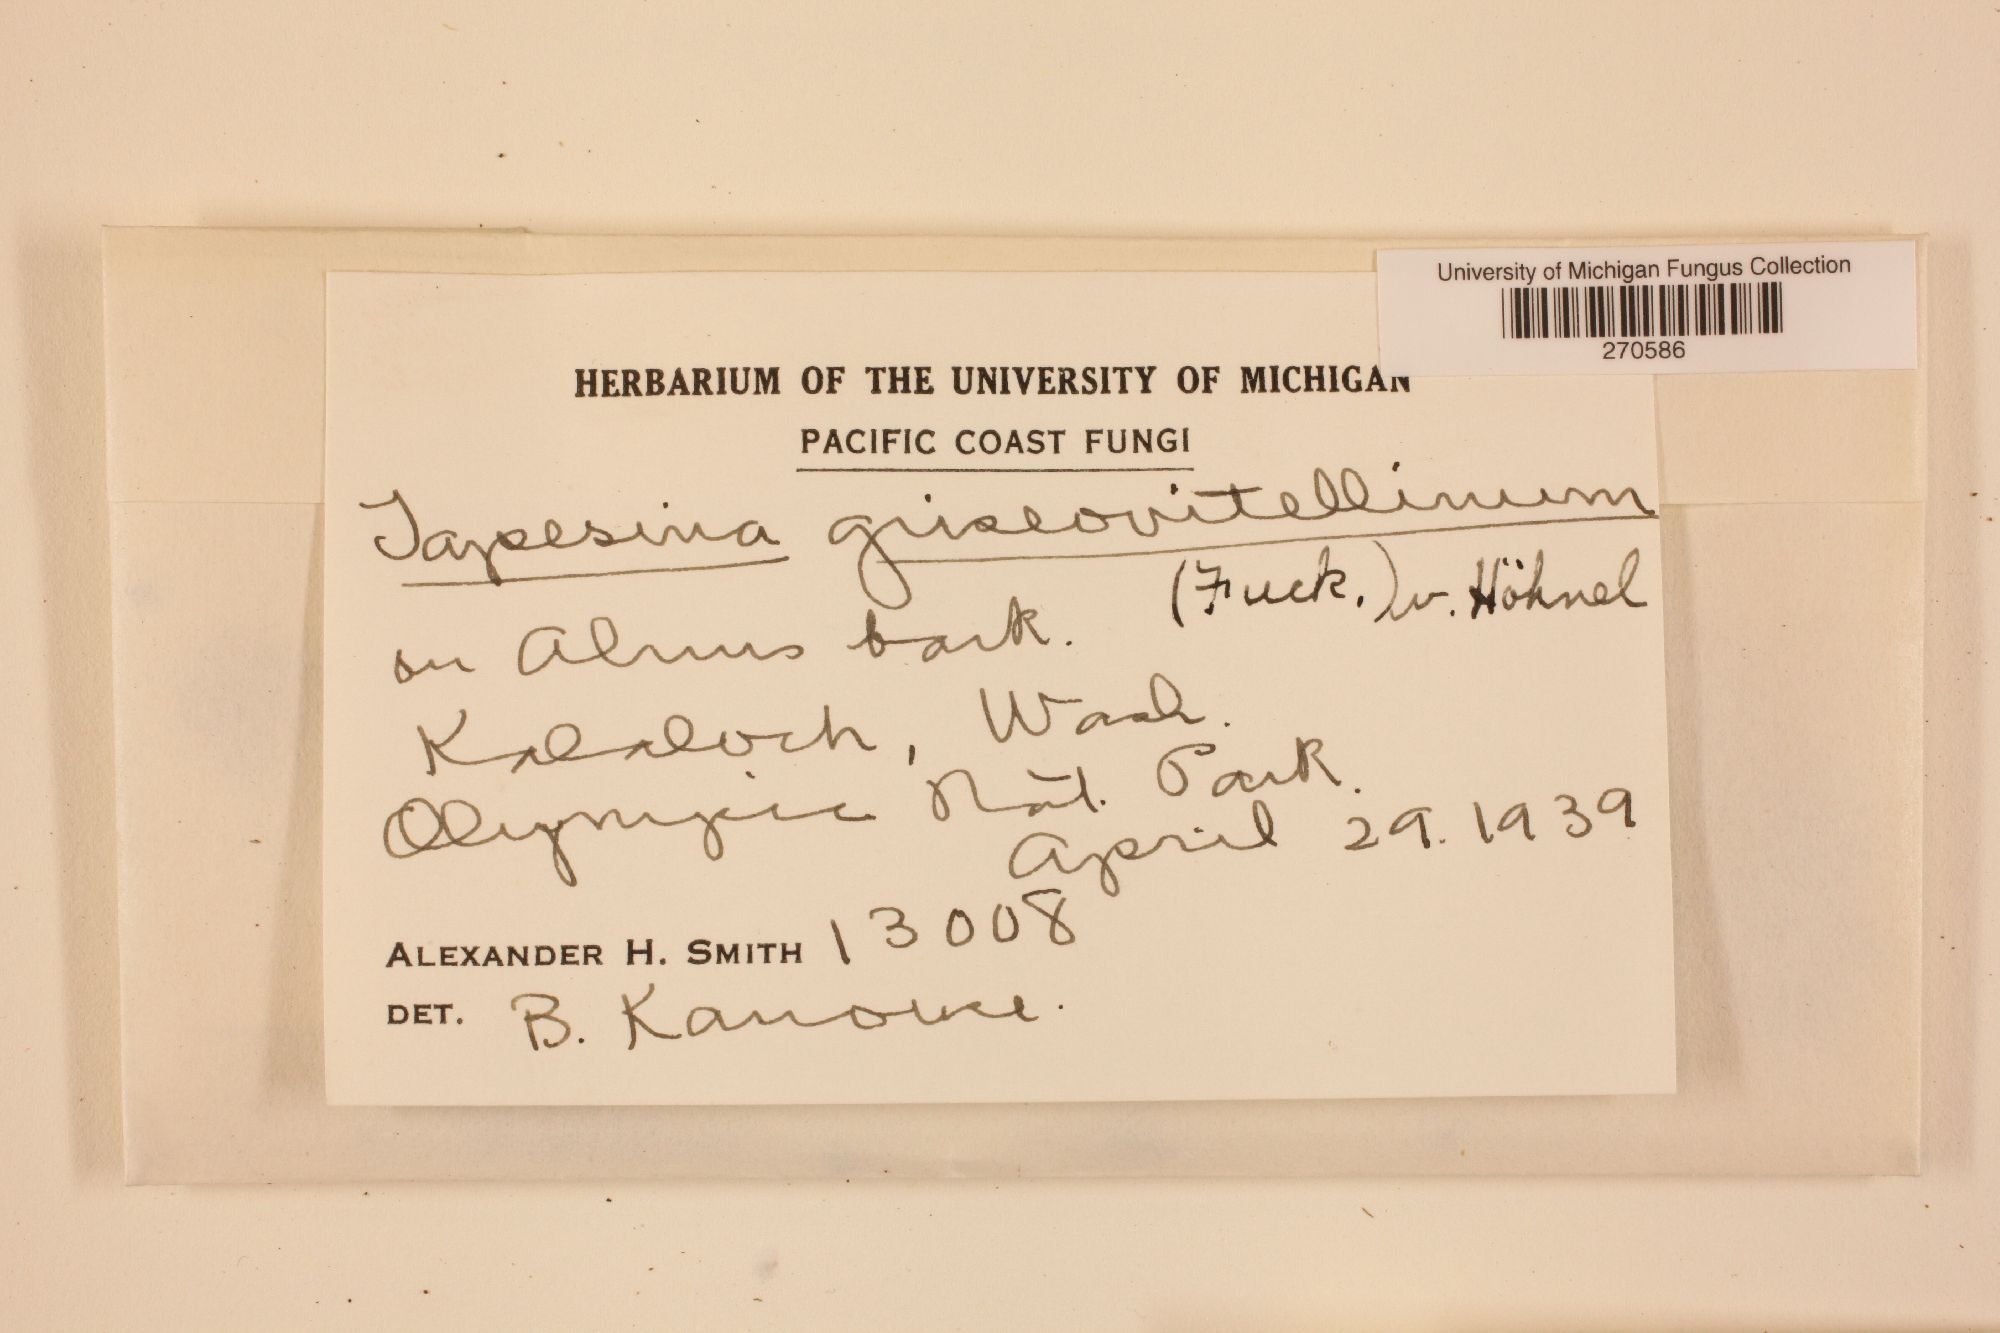 University of Michigan Fungus Collection
270586
HERBARIUM OF THE UNIVERSITY OF MICHIGAN
PACIFIC COAST FUNGI
Tapesina griseovitellinum
(Fuck.) v. Höhnel
on Alnus bark.
Kalaloch, Wash.
Olympic Nat. Park.
April 29. 1939
ALEXANDER H. SMITH 13008
DET. B. Kanouse.